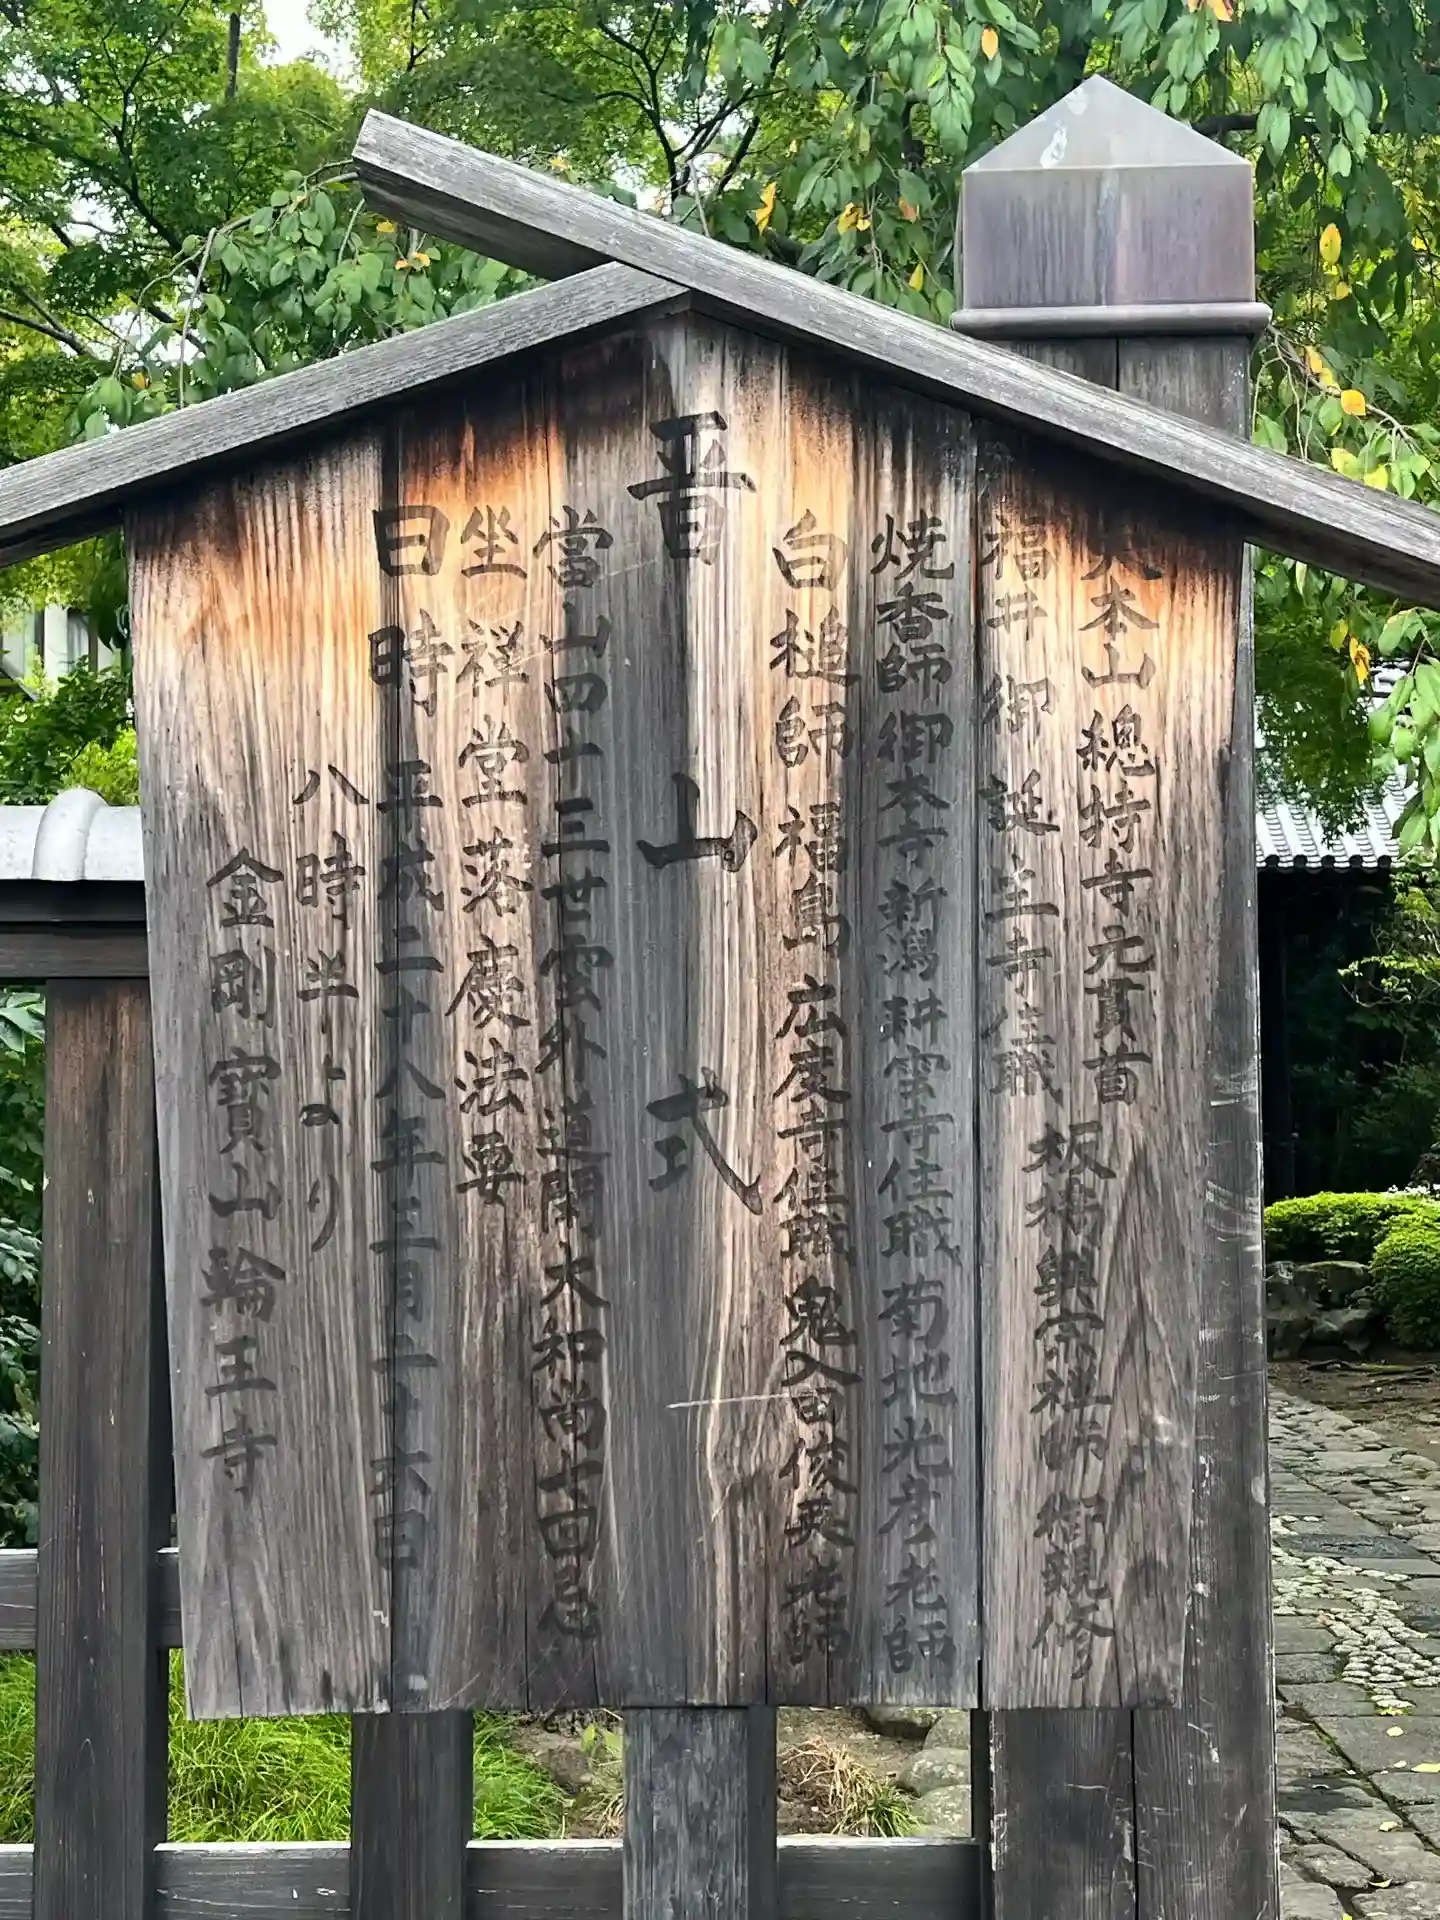 大本山總持寺元貫首 板橋興宗禅師 御親修
福井御誕生寺住職
焼香師御本寺新潟耕雲寺住職 菊地光彦老師
白槌師 福島 広度寺住職 鬼入田俊英老師
晋山式
當山四十三世雲外道関大和尚十一回忌
坐禅堂落慶法要
日時 平成二十八年三月二十六日
八時半より
金剛寶山輪王寺